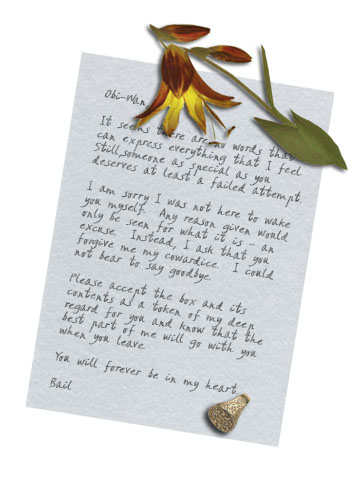 Obi-Wan
It seems there are no words that
can express everything that I feel.
Still, someone as special as you
deserves at least a failed attempt.
I am sorry I was not here to wake
you myself. Any reason given would
only be seen for what it is - an
excuse. Instead, I ask that you
forgive me my cowardice. I could
not bear to say goodbye.
Please accept the box and its
contents as a token of my deep
regard for you and know that the
best part of me will go with you
when you leave.
You will forever be in my heart
Bail